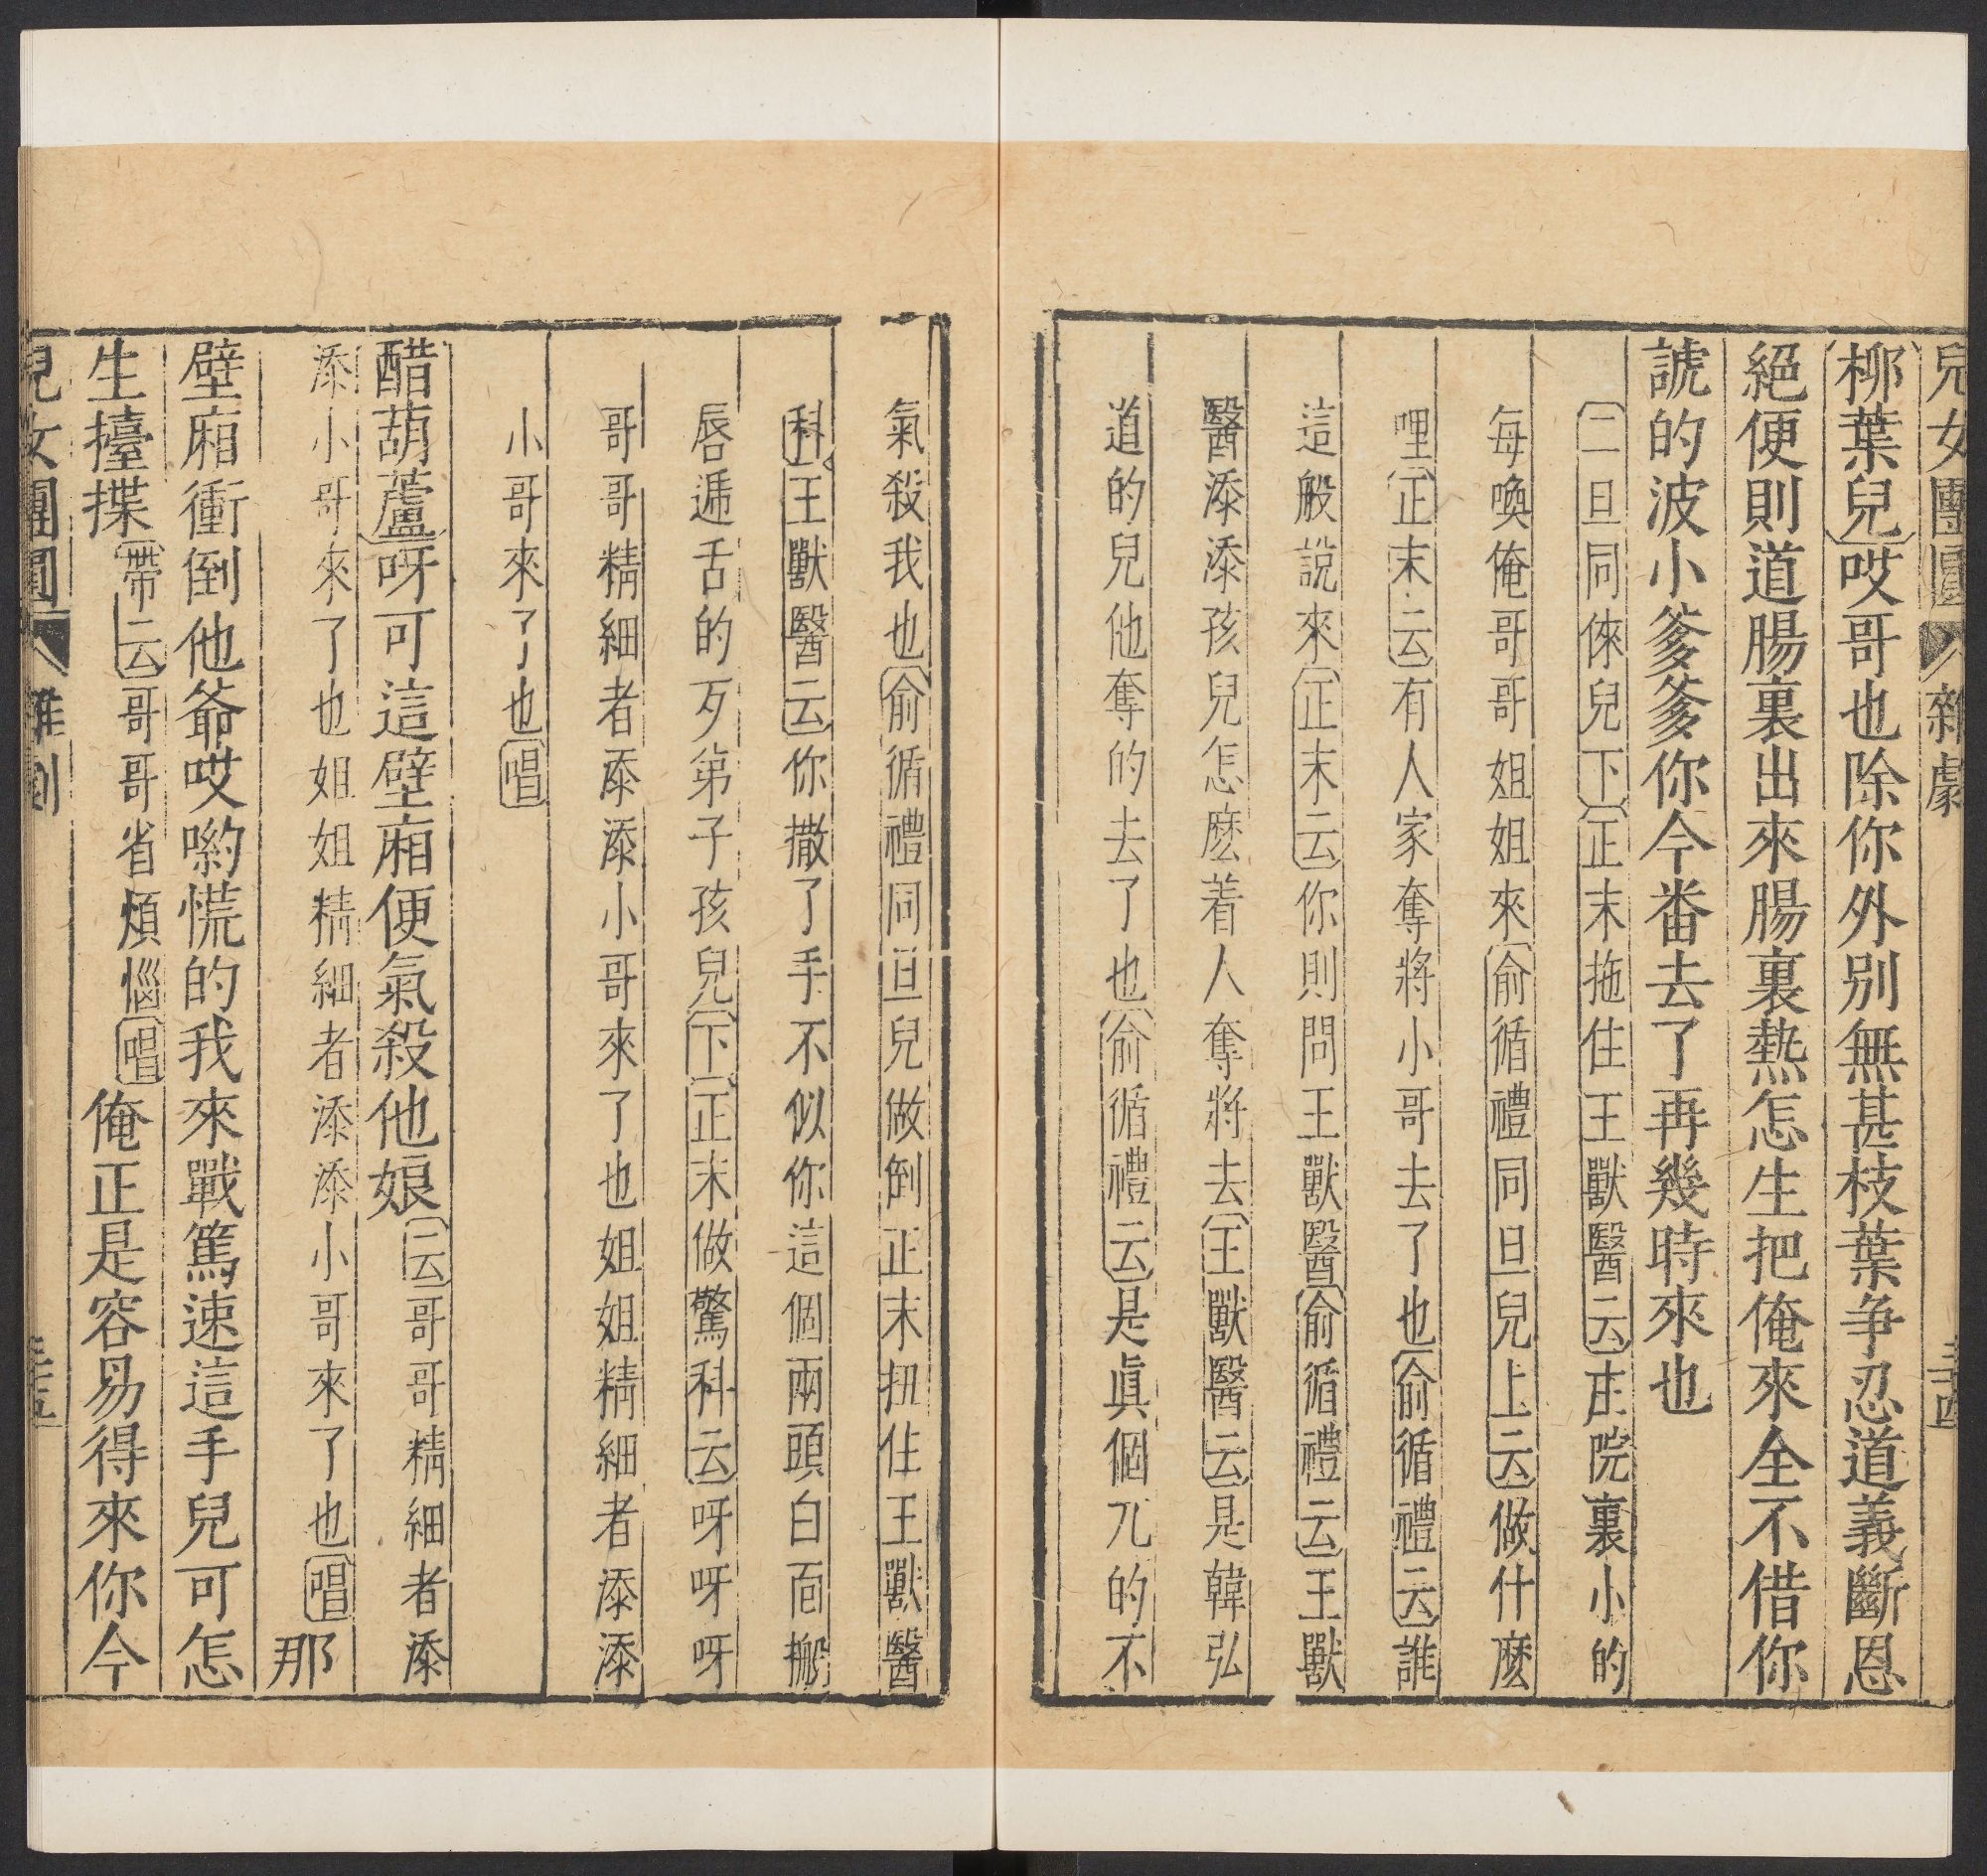 兒女團圓 雜劇 三十四
柳葉兒哎哥也除你外別無甚枝葉争忍道義斷恩
絕便則道腸裏出來腸裏熱怎生把俺來全不偕你
諕的波小爹爹你今番去了再幾時來也
二旦同倈兒下正末拖住王獸醫云庄院裏小的
每喚俺哥哥姐姐來俞循禮同旦兒上云做什麽
哩正末云有人家奪將小哥去了也俞循禮云誰
這般說來正末云你則問王獸醫俞循禮云王獸
醫添添孩兒怎麽着人奪將去王獸醫云是韓弘
道的兒他奪的去了也俞循禮云是眞個兀的不
氣殺我也俞循禮同旦兒做倒正末扭住王獸醫
科王獸醫云你撒了手不似你這個兩頭白面搬
唇遞舌的歹弟子孩兒下正末做驚科云呀呀呀
哥哥精細者添添小哥來了也姐姐精細者添添
小哥來了也唱
醋葫蘆呀可這壁廂便氣殺他娘云哥哥精細者添
添小哥來了也姐姐精細者添添小哥來了也唱那
壁廂衝倒他爺哎喲慌的我來戰篤速這手兒可怎
生擡揲帶云哥哥省煩惱唱俺正是容易得來你今
兒女團圓 雜劇 三十五